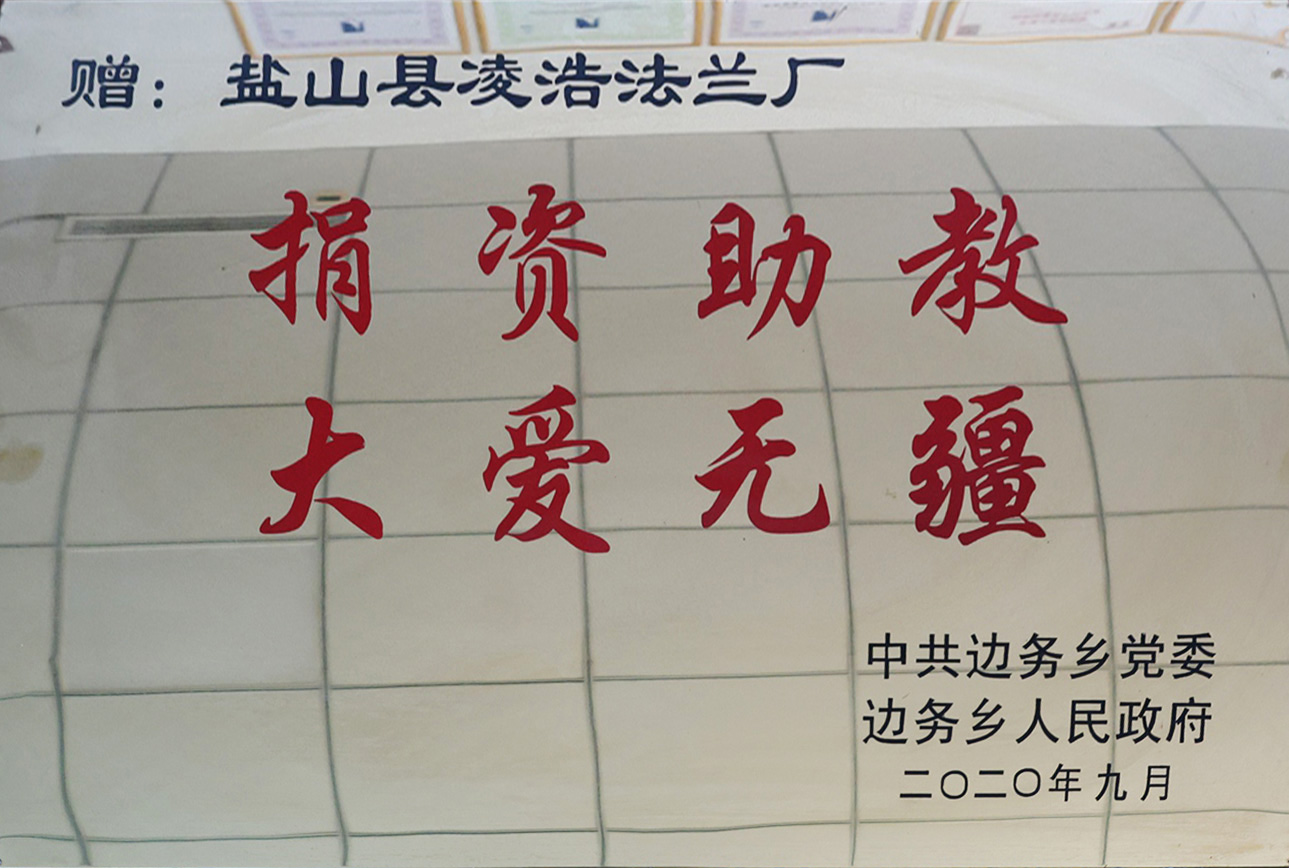 赠：盐山县凌浩法兰厂
捐资助教
大爱无疆
中共边务乡党委
边务乡人民政府
二〇二〇年九月